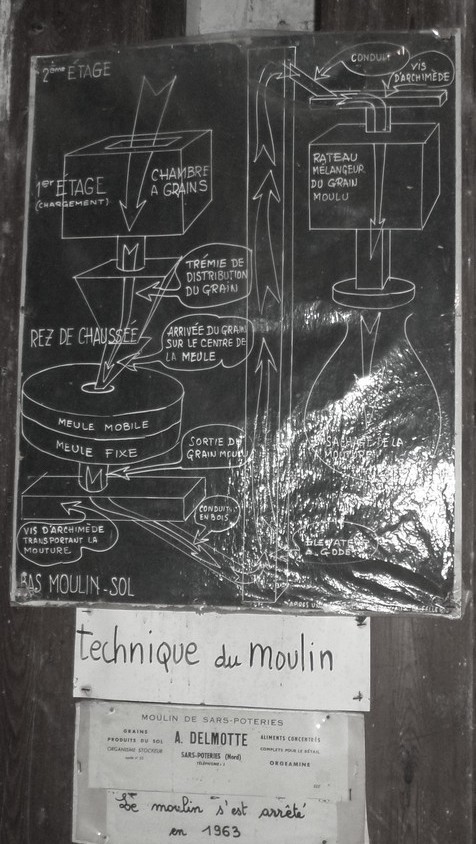 2ème ÉTAGE
CONDUIT
VIS
D'ARCHIMÈDE
CHAMBRE
À GRAINS
1er ÉTAGE
(CHARGEMENT)
RATEAU
MÉLANGEUR
DU GRAIN
MOULU
TRÉMIE DE
DISTRIBUTION
DU GRAIN
REZ DE CHAUSSÉE
ARRIVÉE DU GRAIN
SUR LE CENTRE DE
LA MEULE
MEULE MOBILE
MEULE FIXE
SORTIE DU
GRAIN MOULU
DE LA
MOUTURE
CONDUIT
EN BOIS
VIS D'ARCHIMÈDE
TRANSPORTANT LA
MOUTURE
A GODE
BAS MOULIN-SOL
technique du moulin
MOULIN DE SARS-POTERIES
GRAINS
PRODUITS DU SOL
ORGANISME STOCKEUR
A. DELMOTTE
SARS-POTERIES (Nord)
TÉLÉPHONE :
ALIMENTS CONCENTRÉS
COMPLETS POUR LE BÉTAIL
ORGEAMINE
Le moulin s'est arrêté
en 1963